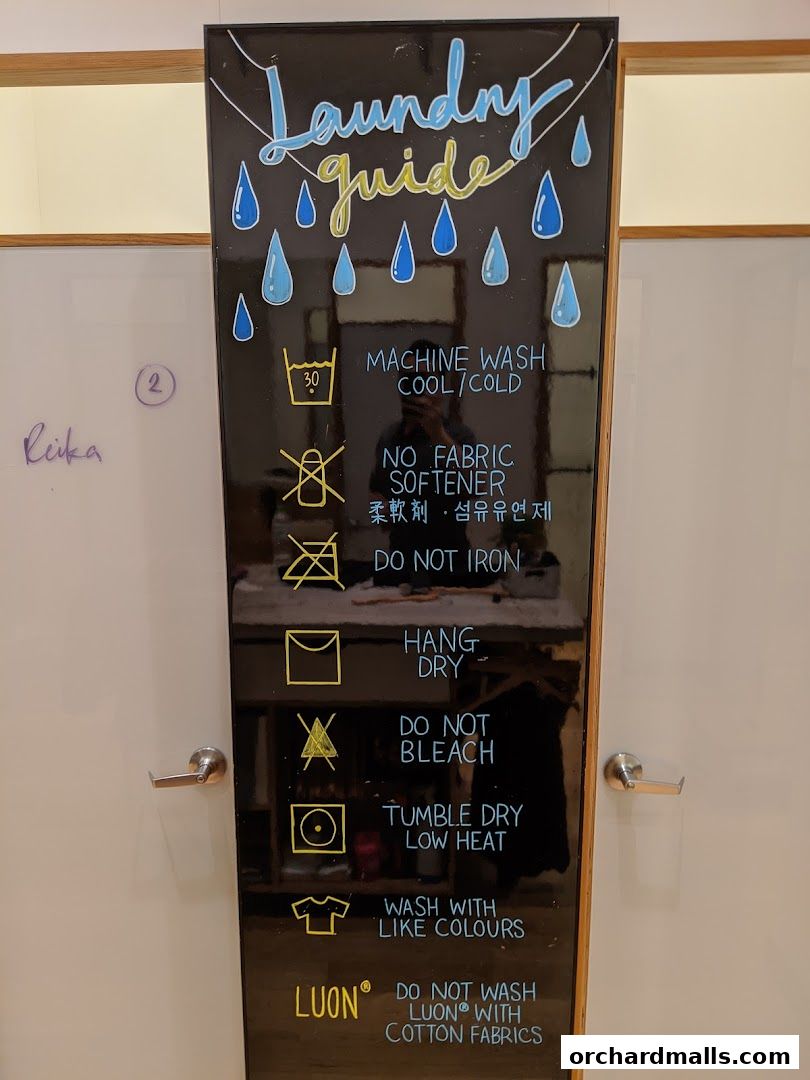 Laundry
guide
2
Reika
30
MACHINE WASH
COOL/COLD
NO FABRIC
SOFTENER
柔軟剤 · 섬유유연제
DO NOT IRON
HANG
DRY
DO NOT
BLEACH
TUMBLE DRY
LOW HEAT
WASH WITH
LIKE COLOURS
LUON®
DO NOT WASH
LUON® WITH
COTTON FABRICS
orchardmalls.com